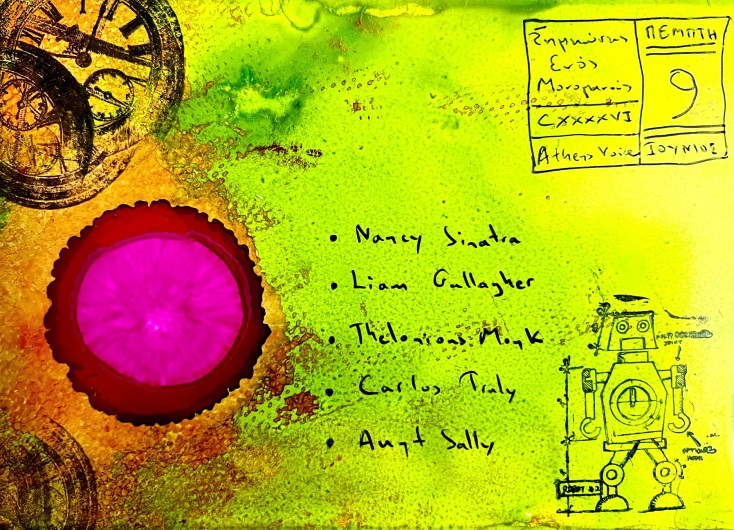 Σημειώσεις
Ενός
Μοναχικού
CXXXXVI
Athens Voice
ΠΕΜΠΤΗ
9
ΙΟΥΝΙΟΣ
• Nancy Sinatra
• Liam Gallagher
• Thelonious Monk
• Carlos Truly
• Aunt Sally
ROBOT #2